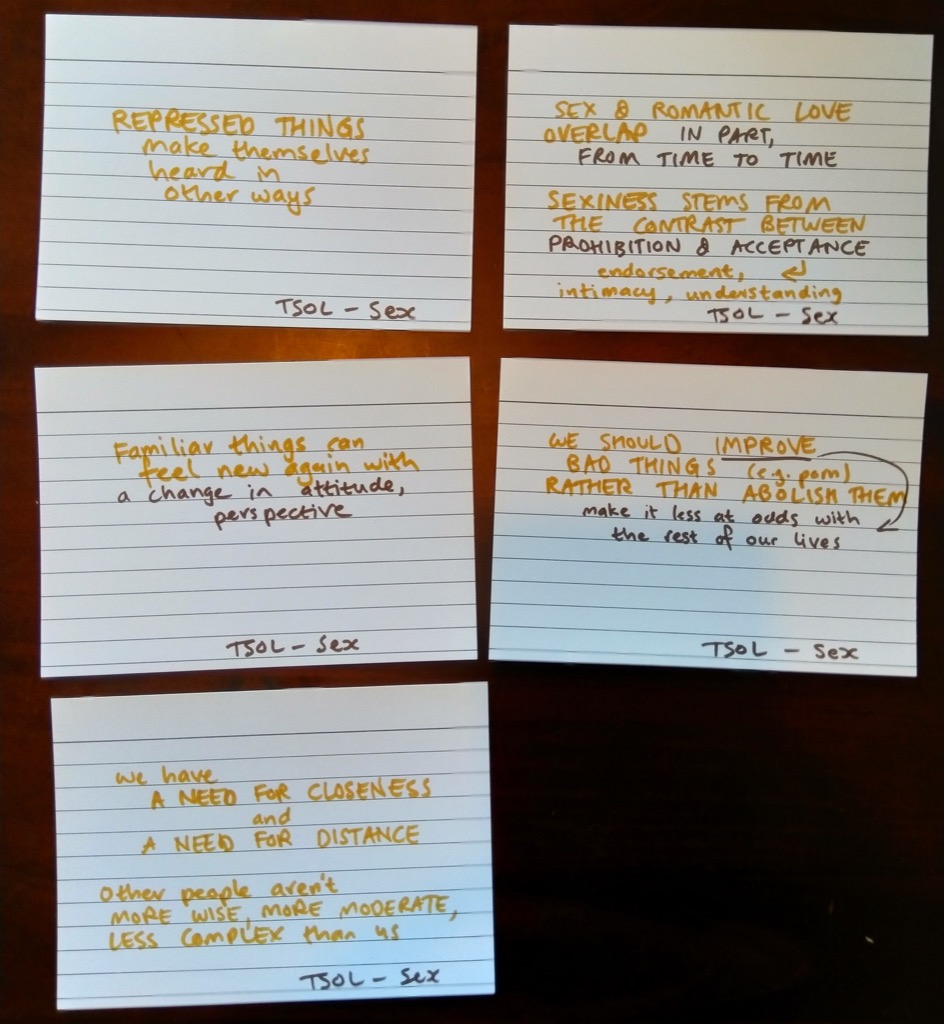 REPRESSED THINGS
make themselves
heard in
other ways
TSOL - Sex
SEX & ROMANTIC LOVE
OVERLAP IN PART,
FROM TIME TO TIME
SEXINESS STEMS FROM
THE CONTRAST BETWEEN
PROHIBITION & ACCEPTANCE
endorsement, ↵
intimacy, understanding
TSOL - Sex
Familiar things can
feel new again with
a change in attitude,
perspective
TSOL - Sex
WE SHOULD IMPROVE
BAD THINGS (e.g. porn)
RATHER THAN ABOLISH THEM
make it less at odds with
the rest of our lives
TSOL - Sex
we have
A NEED FOR CLOSENESS
and
A NEED FOR DISTANCE
Other people aren't
MORE WISE, MORE MODERATE,
LESS COMPLEX than us
TSOL - Sex